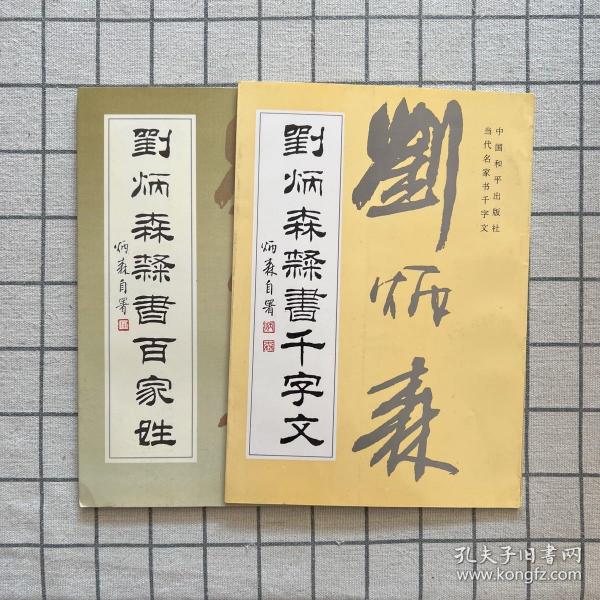 劉炳森隸書百家姓
炳森自署
劉炳森隸書千字文
炳森自署
劉炳森
中国和平出版社
当代名家书千字文
孔夫子旧书网
www.kongfz.com